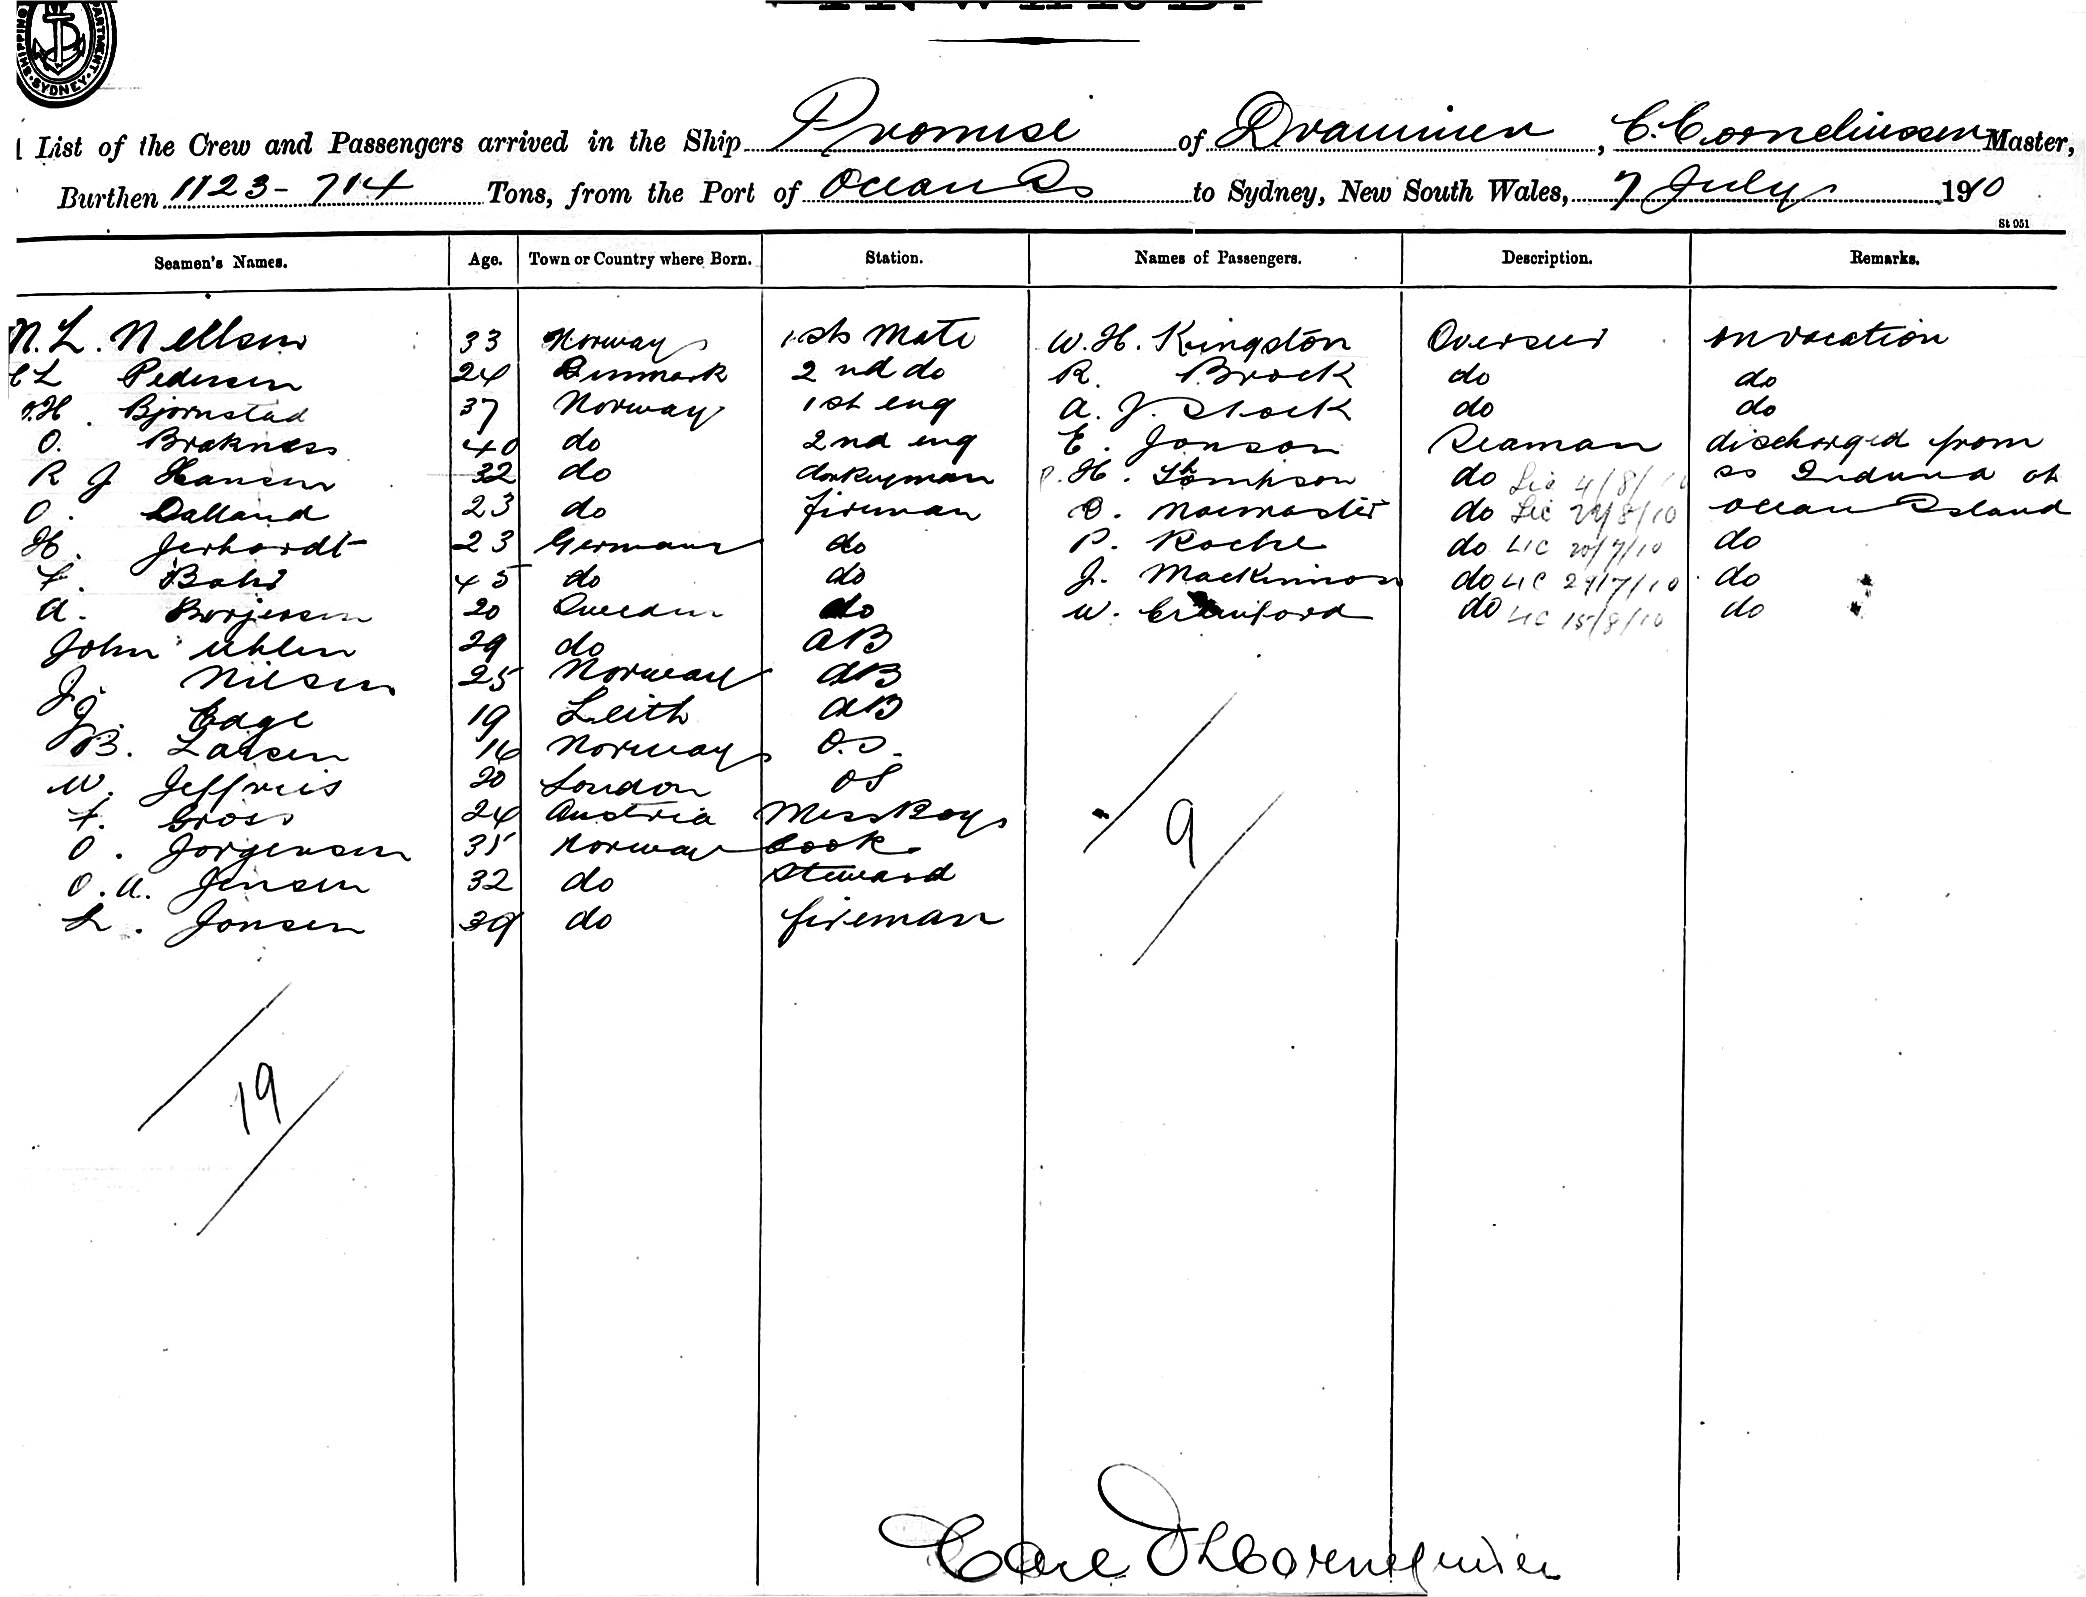 SHIPPING DEPARTMENT SYDNEY
List of the Crew and Passengers arrived in the Ship Promise of Drammen, C. Corneliussen Master,
Burthen 1123 - 714 Tons, from the Port of Ocean Is to Sydney, New South Wales, 7 July 1910
St 051
Seamen's Names. Age. Town or Country where Born. Station. Names of Passengers. Description. Remarks.
N. L. Nellsen 33 Norway 1st Mate W. H. Kingston Overseer on vacation
C L Pedersen 24 Denmark 2nd do R. Brock do do
H. Bjornstad 37 Norway 1st eng A. J. Stock do do
O. Brakness 40 do 2nd eng E. Jonson Seaman discharged from
R J Hansen 32 do donkeyman H. Thompson do Lic 4/8/10 ss Induna at
O. Dalland 23 do fireman O. do Lic 29/8/10 Ocean Island
H. Jerhardt 23 Germany do P. Roche do LIC 20/7/10 do
F. 45 do do J. Mackinnon do LIC 29/7/10 do
A. Borjessen 20 Sweden do W. Crawford do LIC 15/8/10 do
John Uhlen 29 do AB
J. Nilsen 25 Norway AB
J. Edge 19 Leith AB
B. Larsen 16 Norway O.S.
W. Jeffries 20 London OS
F. Gross 24 Austria Mess Boy
O. Jorgensen 35 Norway Cook
O. A. Jensen 32 do Steward
L. Jonsen 39 do fireman
9
19
Carl